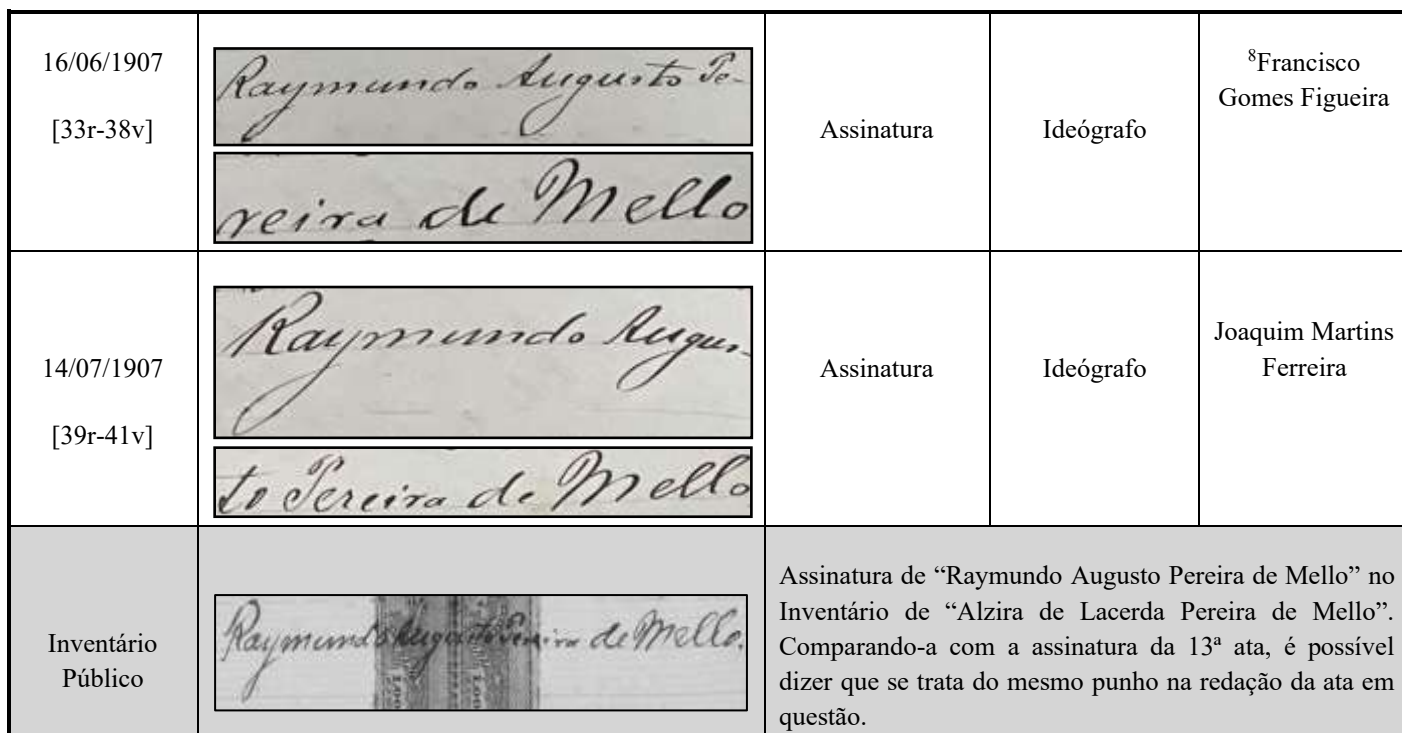 16/06/1907
[33r-38v]
Raymundo Augusto Pe-
reira de Mello
Assinatura
Ideógrafo
⁸Francisco
Gomes Figueira
14/07/1907
[39r-41v]
Raymundo Augus-
to Pereira de Mello
Assinatura
Ideógrafo
Joaquim Martins
Ferreira
Inventário
Público
Raymundo Augusto Pereira de Mello.
Assinatura de “Raymundo Augusto Pereira de Mello” no
Inventário de “Alzira de Lacerda Pereira de Mello”.
Comparando-a com a assinatura da 13ª ata, é possível
dizer que se trata do mesmo punho na redação da ata em
questão.